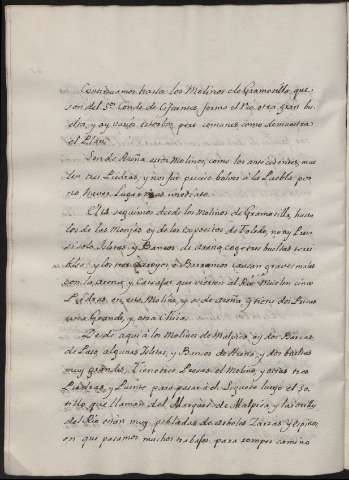 Continuamos hasta los Molinos de Gramosilla, que
son del S.or Conde de Cifuentes, forma el Rio otra gran bu
elta, y ay varios estorbos, pero comunes como demuestra
el Plan.
Son de Azeña estos Molinos, como los antecedentes, mue
len tres Piedras, y nos fue preciso bolver à la Puebla por
no haver Lugar mas imediato.
El 12 seguimos desde los Molinos de Gramosilla, hasta
los de las Monjas oy de los Expositos de Toledo, no ay Pres
si solo Isletas, y Bancos de arena, cogen tres bueltas
y los tres arroyos ò Barrancos causan graves males
con la arena y Cascajos que vierten al Rio. Muelen cinco
Piedras, en este Molino, y es de azeña, y tiene dos Presas
una Grande, y otra Chica.
Desde aqui à los Molinos de Malpica, ay dos Barcas
de Paso, algunas Isletas, y Bancos de Arena, y dos bueltas
muy grandes. Tiene tres Presas el Molino, y otras tres
Piedras, y Puente para pasar el Siguero luego el So
tillo que llaman del Marques de Malpica, y las orillas
del Rio estàn muy pobladas de arboles Zarzas, y espinos,
en que pasamos muchos trabajos para romper camino